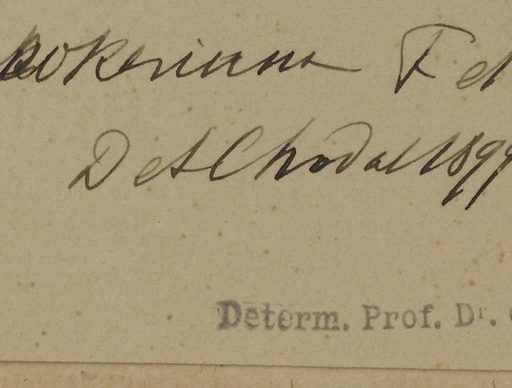 ookeriana F et
Det Chodat 1899
Determ. Prof. Dr.